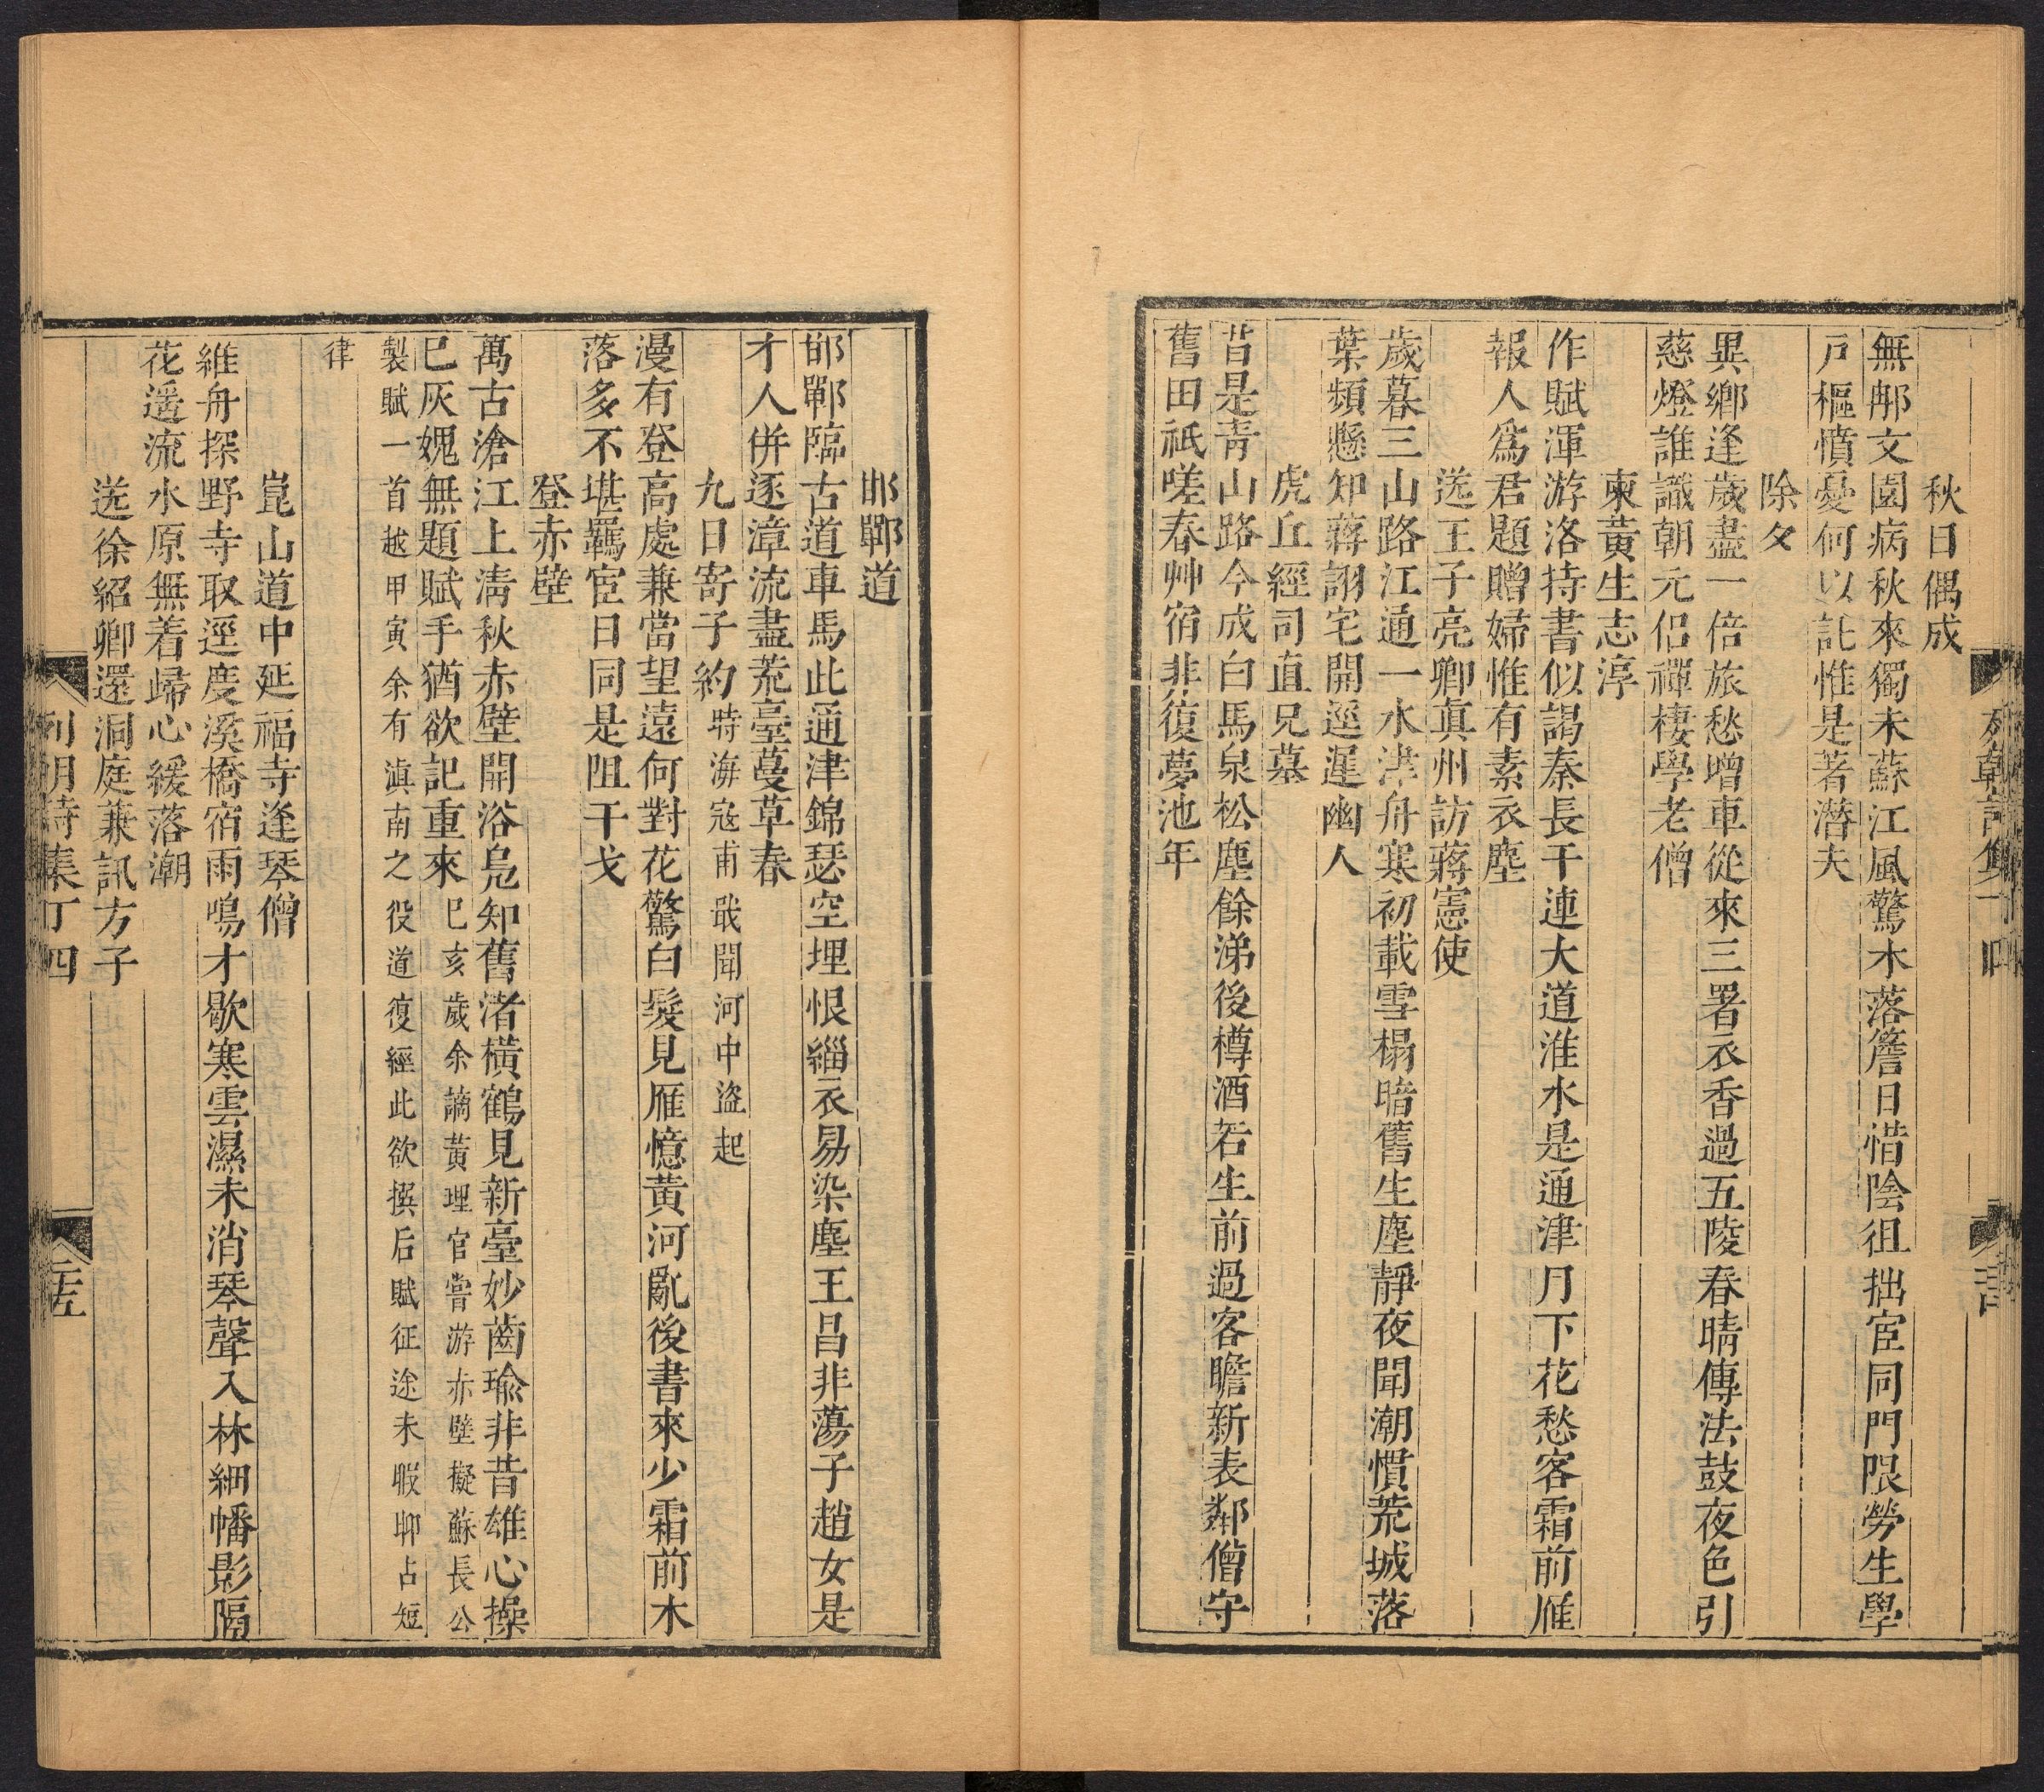 秋日偶成
無邴文園病秋來獨未蘇江風驚木落簷日惜陰徂拙宦同門限勞生學
戸樞憤憂何以託惟是著潛夫
除夕
異鄉逢歲盡一倍旅愁增車從來三署衣香過五陵春晴傳法鼓夜色引
慈燈誰識朝元侶禪棲學老僧
柬黃生志淳
作賦渾游洛持書似謁秦長干連大道淮水是通津月下花愁客霜前雁
報人爲君題贈婦惟有素衣塵
送王子亮卿眞州訪蔣憲使
歲暮三山路江通一水津舟寒初載雪榻暗舊生塵靜夜聞潮慣荒城落
葉頻懸知蔣詡宅開逕遲幽人
虎丘經司直兄墓
昔是靑山路今成白馬泉松塵餘涕後樽酒若生前過客瞻新表鄰僧守
舊田祇嗟春艸宿非復夢池年
邯鄲道
邯鄲臨古道車馬此通津錦瑟空埋恨緇衣易染塵王昌非蕩子趙女是
才人併逐漳流盡荒臺蔓草春
九日寄子約時海寇甫戢聞河中盜起
漫有登高處兼當望遠何對花驚白髮見雁憶黃河亂後書來少霜前木
落多不堪羈宦日同是阻干戈
登赤壁
萬古滄江上淸秋赤壁開浴凫知舊渚橫鶴見新臺妙齒瑜非昔雄心操
巳灰媿無題賦手猶欲記重來巳亥歲余謫黃理官嘗游赤壁擬蘇長公
製賦一首越甲寅余有滇南之役道復經此欲撰后賦征途未暇聊占短
律
崑山道中延福寺逢琴僧
維舟探野寺取逕度溪橋宿雨鳴才歇寒雲濕未消琴聲入林細幡影隔
花遙流水原無着歸心緩落潮
送徐紹卿還洞庭蒹訊方子
列朝詩集丁四